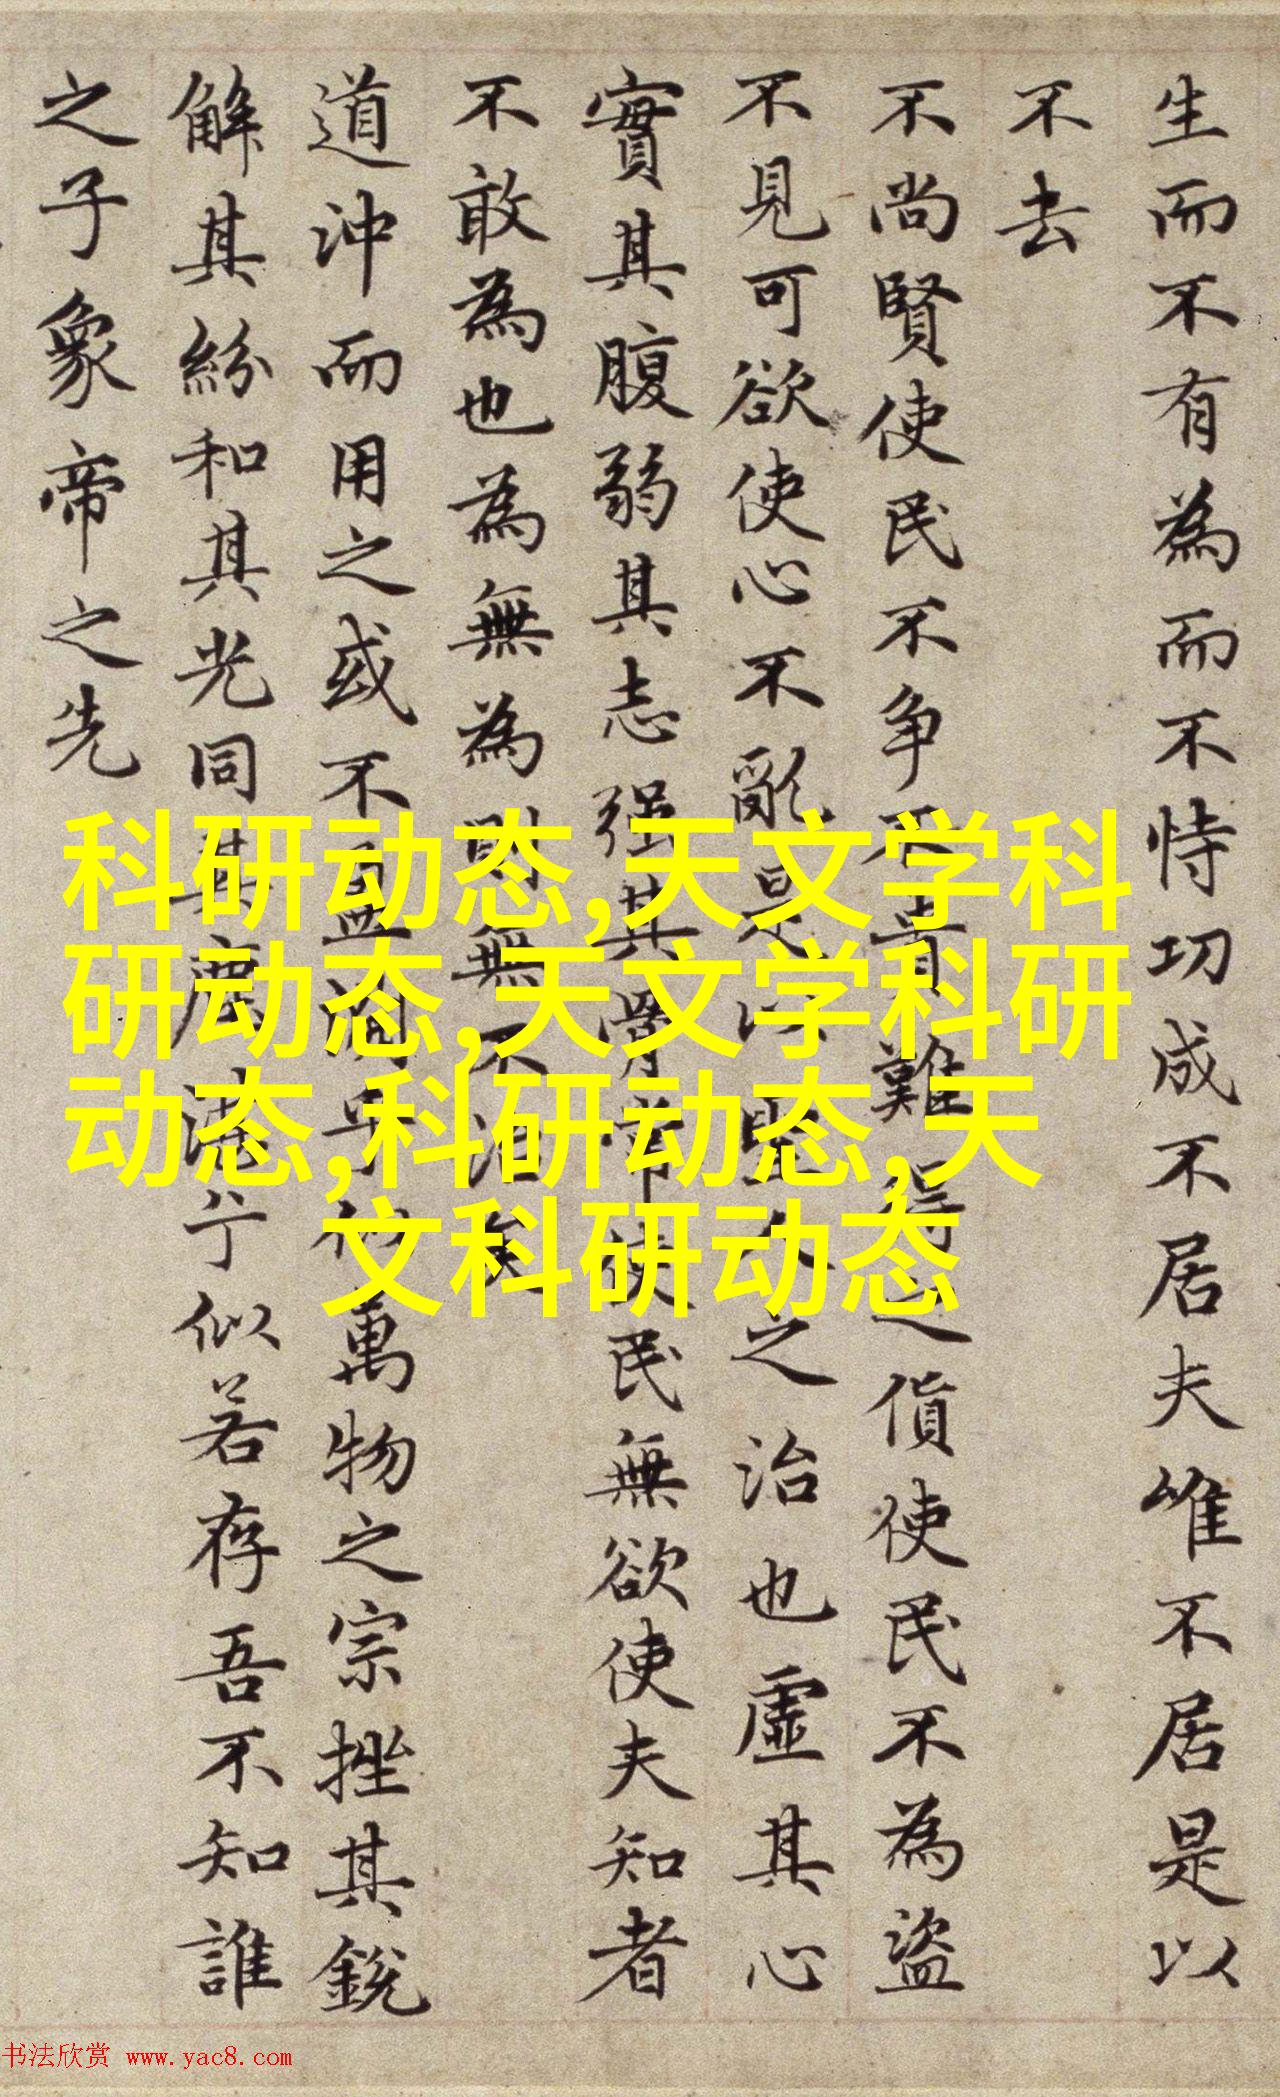 生而不有為而不恃功成不居夫唯不居是以
不去
不尚賢使民不争不貴難得之貨使民不為盜
不見可欲使心不亂是以聖人之治也虛其心
實其腹弱其志强其骨常使民無欲使夫知者
不敢為也為無為則無不治矣
道沖而用之或不盈淵乎似萬物之宗挫其銳
解其紛和其光同其塵湛兮似若存吾不知誰
之子象帝之先
科研动态,天文学科
研动态,天文学科研
动态,科研动态,天
文科研动态
书法欣赏 www.yac8.com